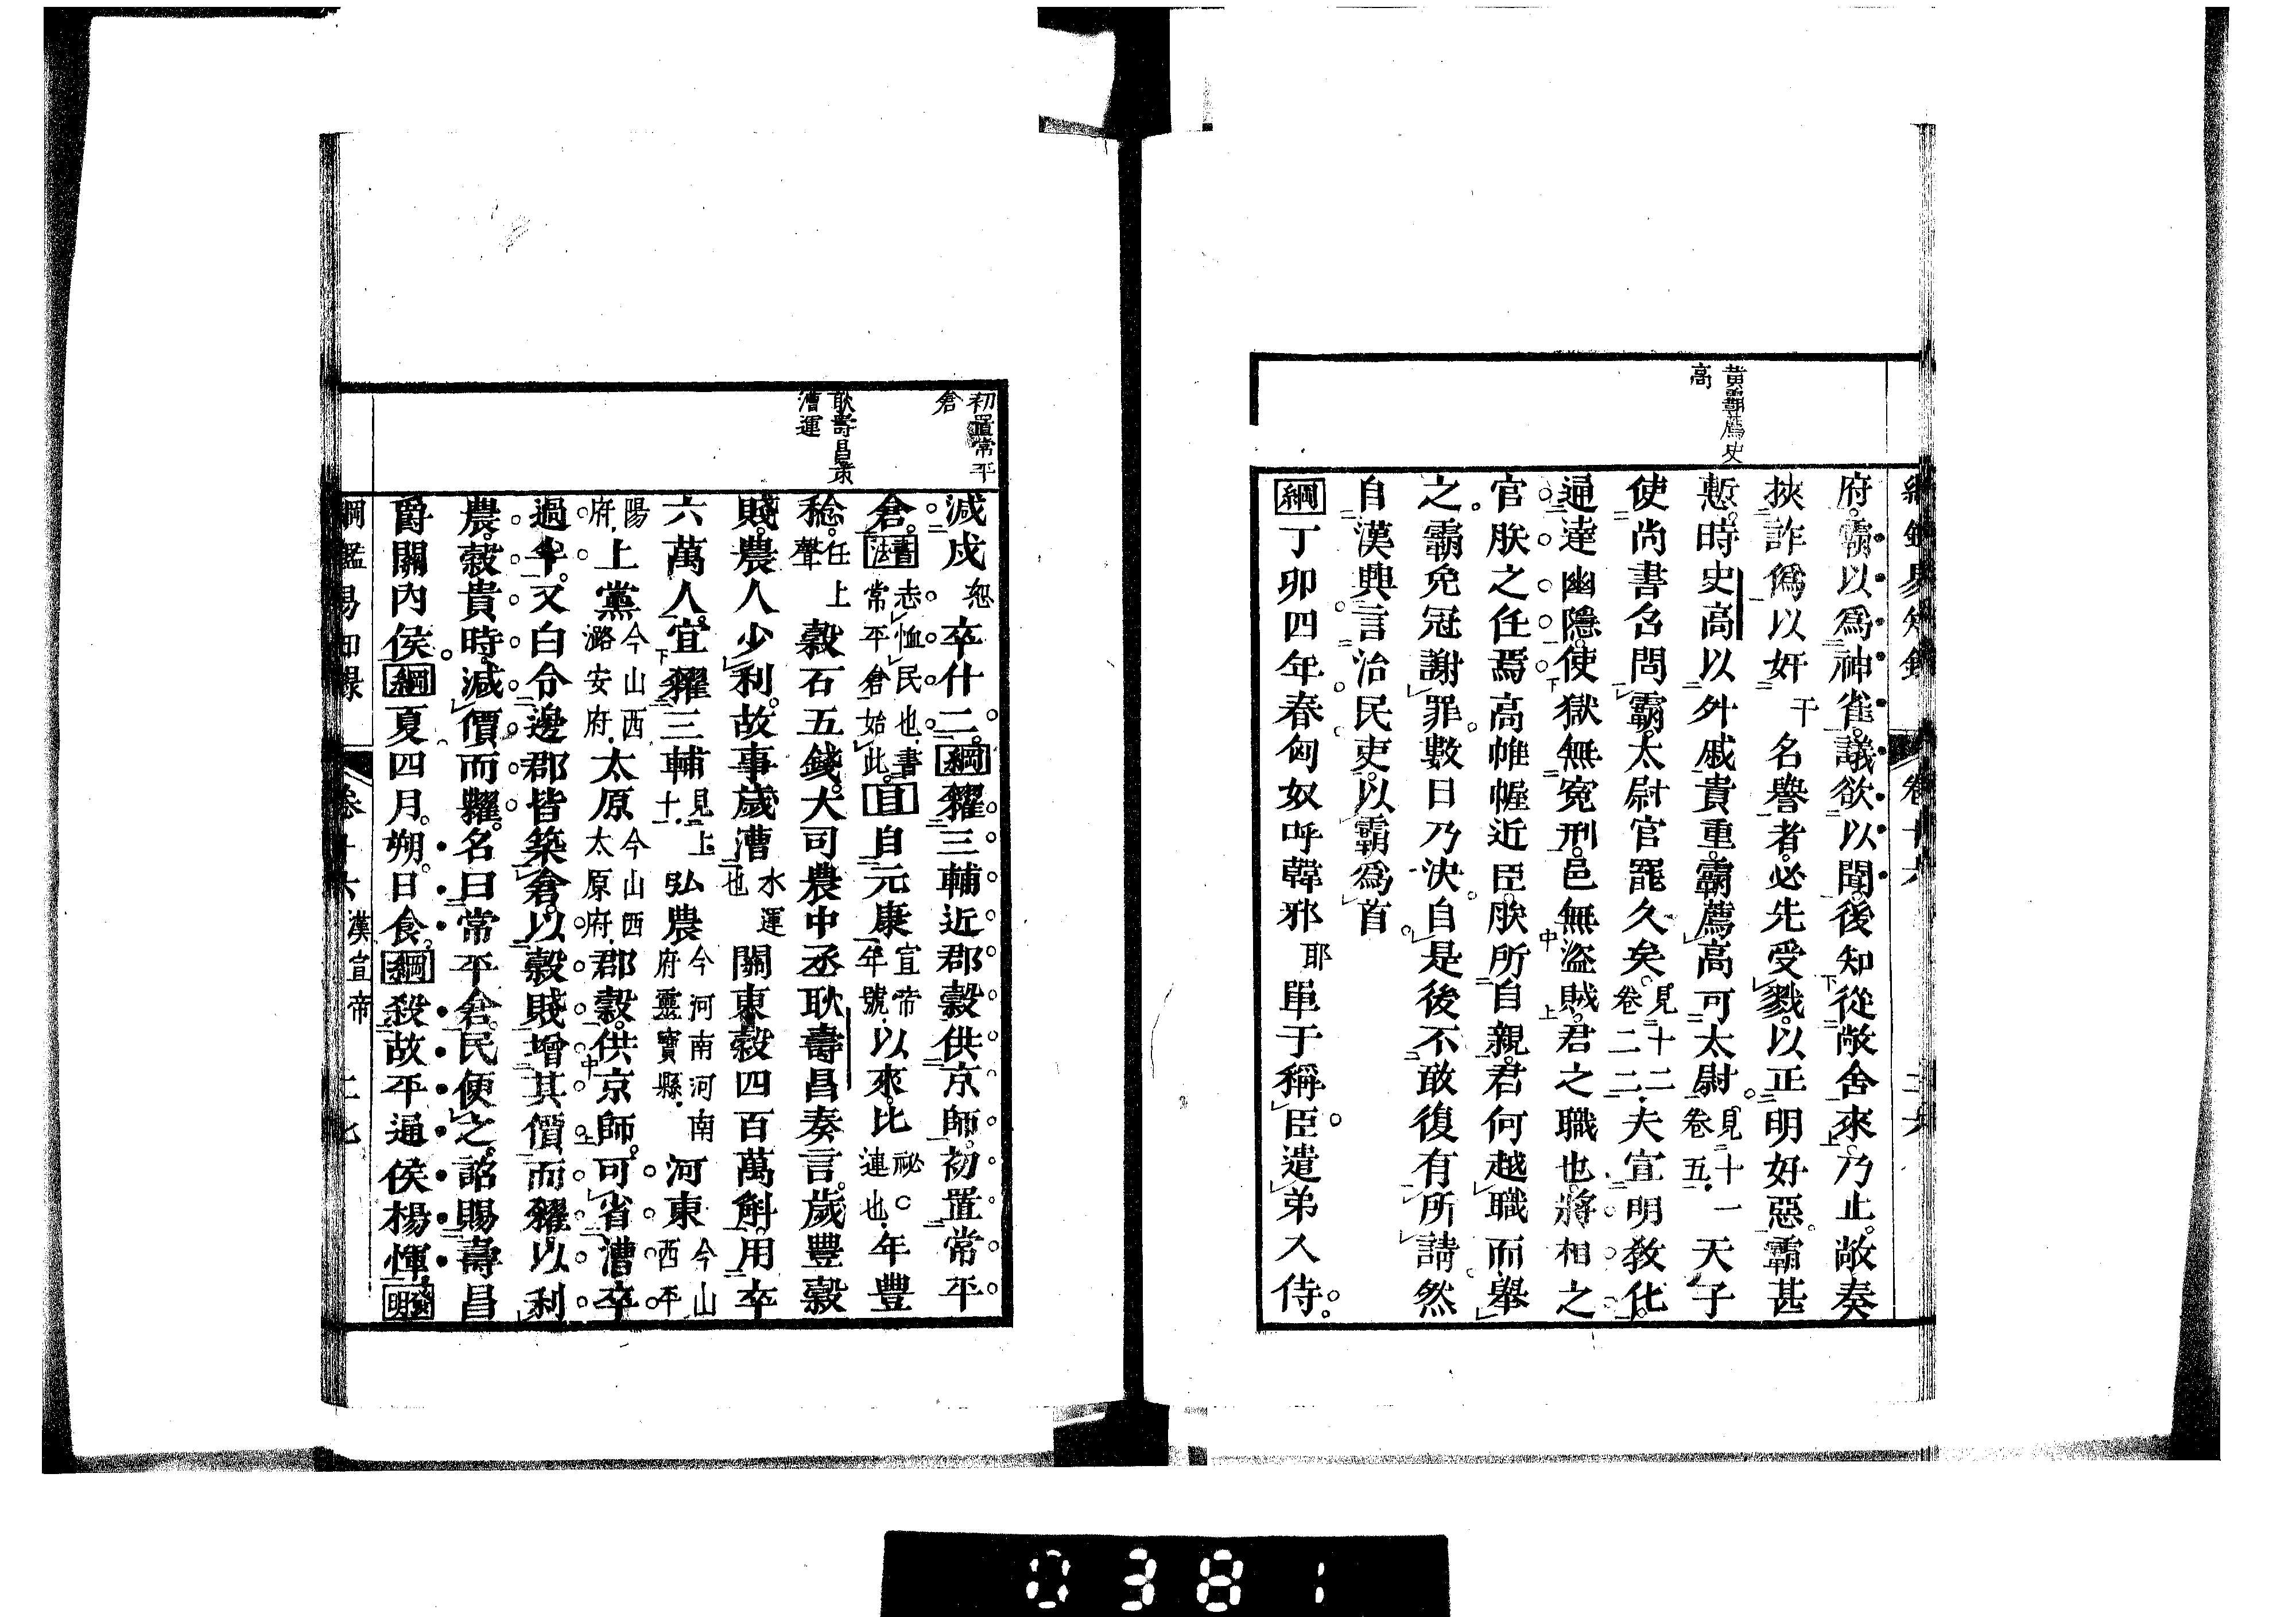 綱鑑易知錄 卷十六 二六
黃霸薦史
高
府霸以爲神雀議欲以聞後知從敞舍來乃止敞奏
挾詐僞以奸干名譽者必先受戮以正明好惡霸甚
慙時史高以外戚貴重霸薦高可太尉見十一卷五天子
使尚書召問霸太尉官罷久矣見十二卷二二夫宣明敎化
通達幽隱使獄無寃刑邑無盜賊君之職也將相之
官朕之任焉高帷幄近臣朕所自親君何越職而舉
之霸免冠謝罪數日乃決自是後不敢復有所請然
自漢興言治民吏以霸爲首
綱丁卯四年春匈奴呼韓邪耶單于稱臣遣弟入侍
初置常平
倉
耿壽昌柰
漕運
減戍恕卒什二綱糴三輔近郡穀供京師初置常平
倉書法志恤民也書常平倉始此目自元康宣帝年號以來比祕連也年豐
稔任上聲穀石五錢大司農中丞耿壽昌奏言歲豐穀
賤農人少利故事歲漕水運也關東穀四百萬斛用卒
六萬人宜糴三輔見上十弘農今河南河南府靈寶縣河東今山西平
陽府上黨今山西潞安府太原今山西太原府郡穀供京師可省漕卒
過半又白令邊郡皆築倉以穀賤增其價而糴以利
農穀貴時減價而糶名曰常平倉民便之詔賜壽昌
爵關內侯綱夏四月朔日食綱殺故平通侯楊惲發明
綱鑑易知錄 卷十六 漢宣帝 二七
0381